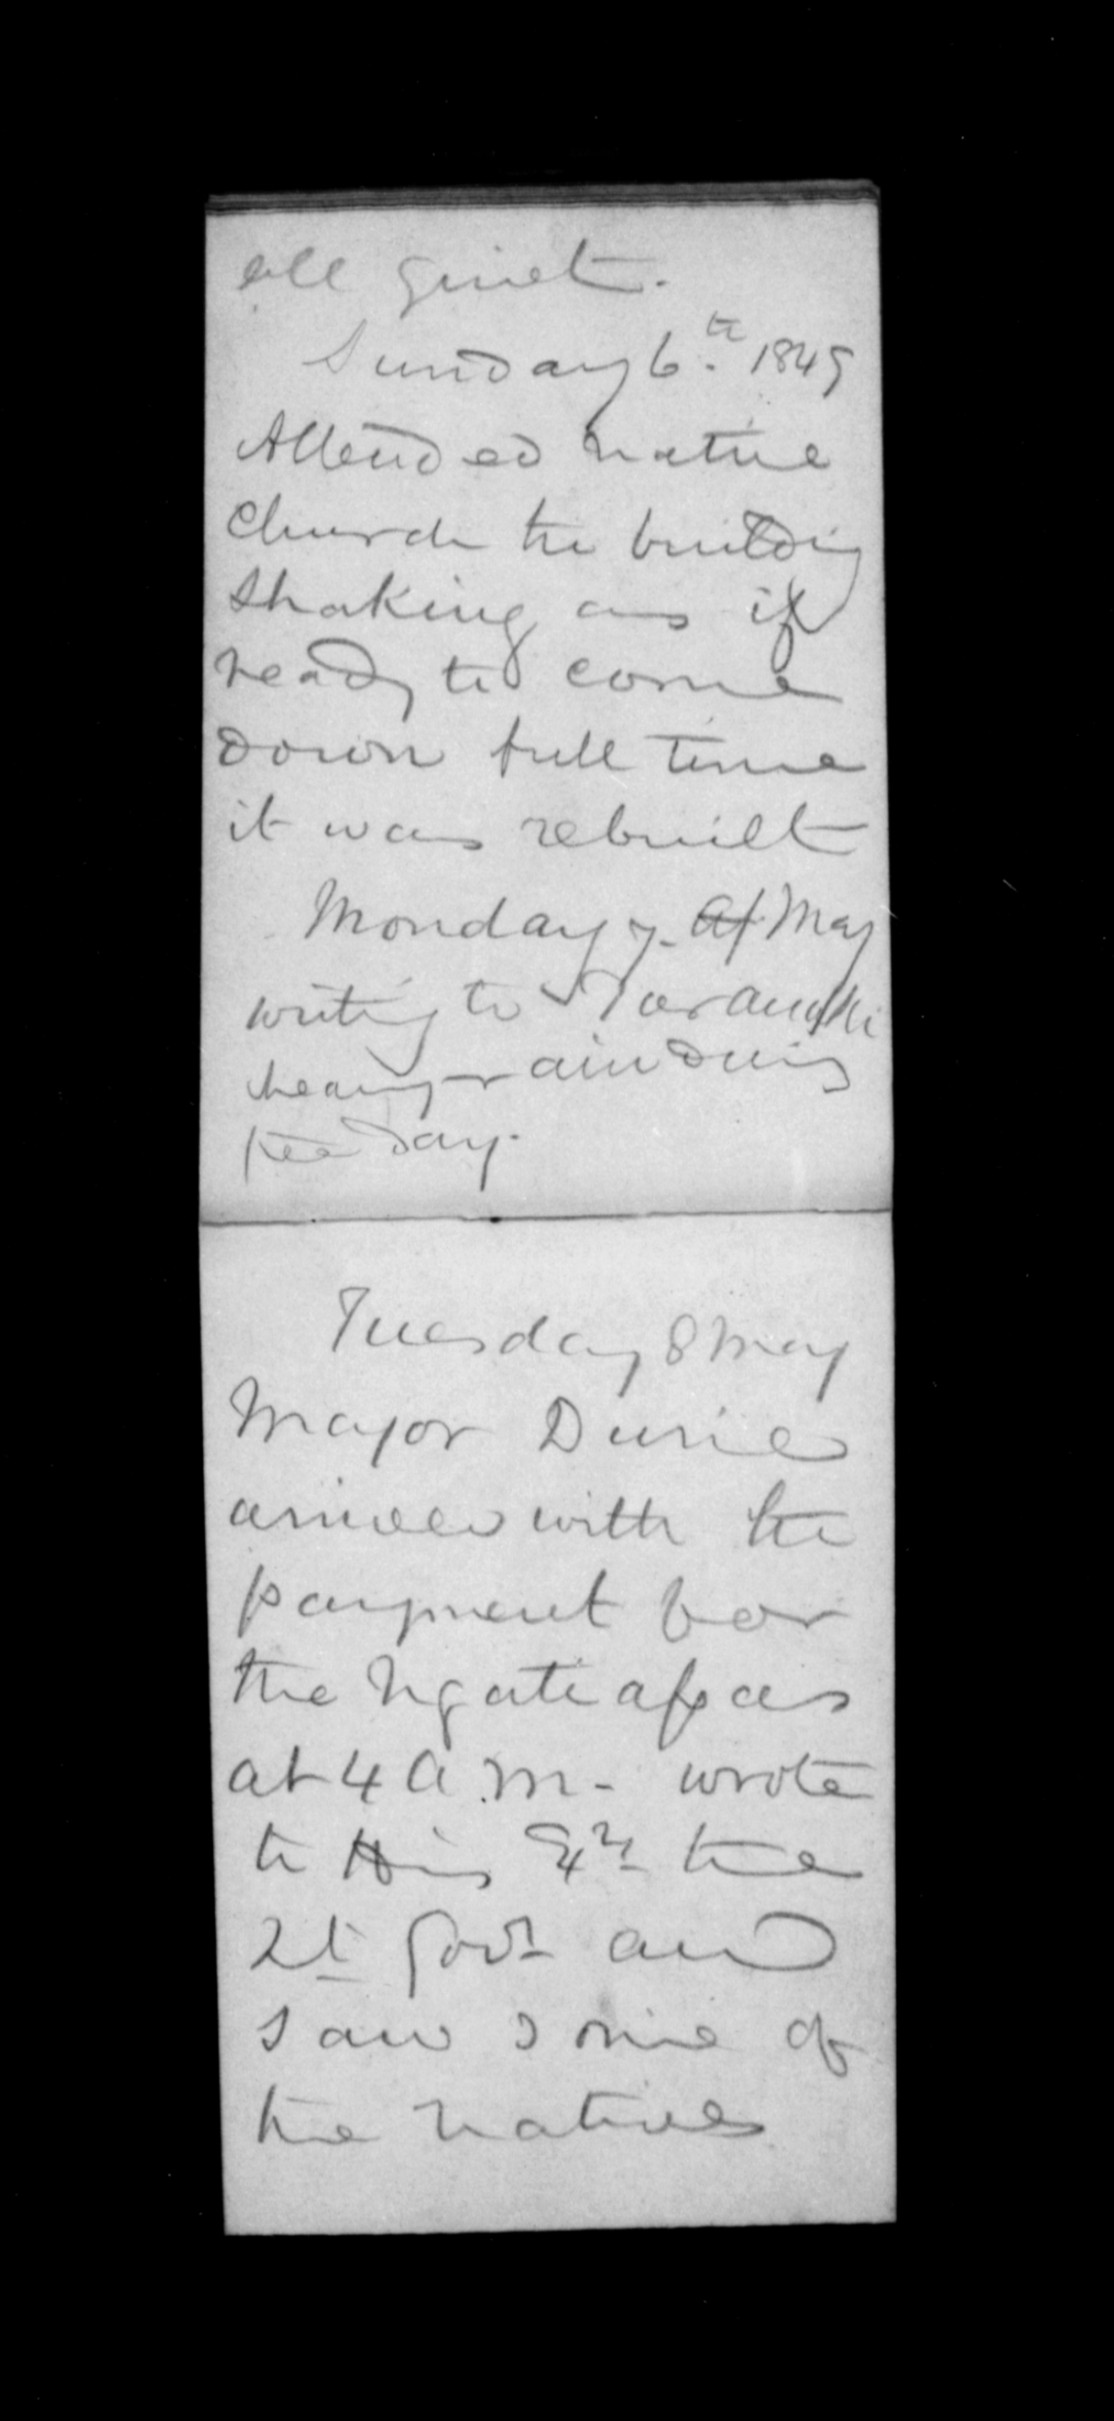 all quiet.
Sunday 6.th 1849
Attended native
church the building
shaking as if
ready to come
down full time
it was rebuilt
Monday 7. Ap May
writing to Taranaki
heavy rain during
the day.
Tuesday 8 May
Major Durie
arrived with the
payment for
the Ngatiapas
at 4 A.M. - wrote
to His Ex the
Lt Govr and
saw some of
the natives